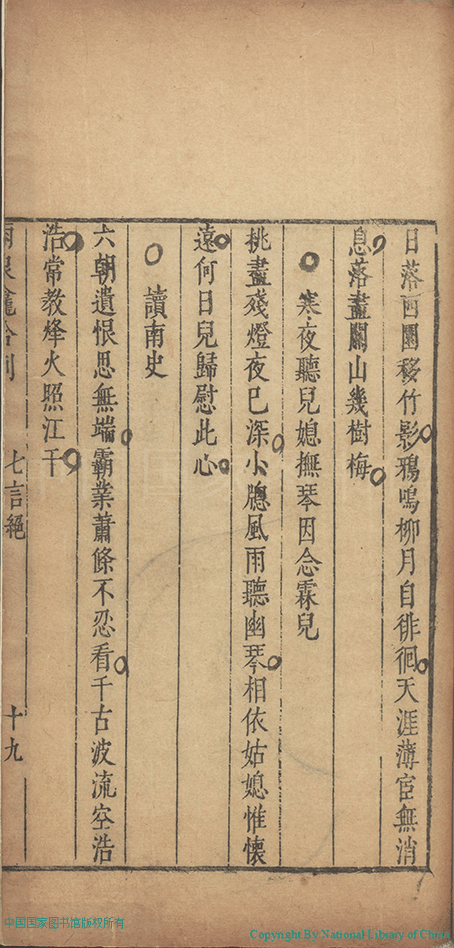 日落西園移竹影鴉鳴柳月自徘徊天涯薄宦無消
息落盡關山幾樹梅
寒夜聽兒媳撫琴因念霖兒
挑盡殘燈夜已深小牕風雨聽幽琴相依姑媳惟懷
遠何日兒歸慰此心
讀南史
六朝遺恨思無端霸業蕭條不忍看千古波流空浩
浩常教烽火照江干
七言絕 十九
中国国家图书馆版权所有
Copyright By National Library of China